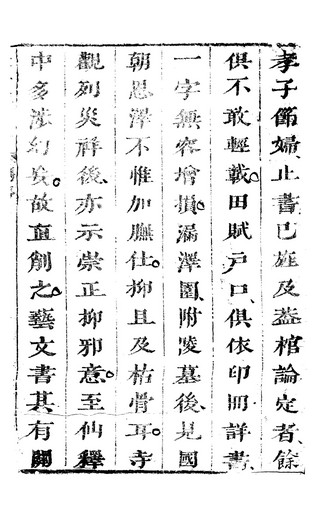 孝子節婦止書已旌及葢棺論定者餘
俱不敢輕載田賦戸口俱依印冊詳書
一字無容增損漏澤園附凌墓後見國
朝恩澤不惟加膴仕抑且及枯骨耳寺
觀列災祥後亦示崇正抑邪意至仙釋
中多涉幻妄故直削之藝文書其有關